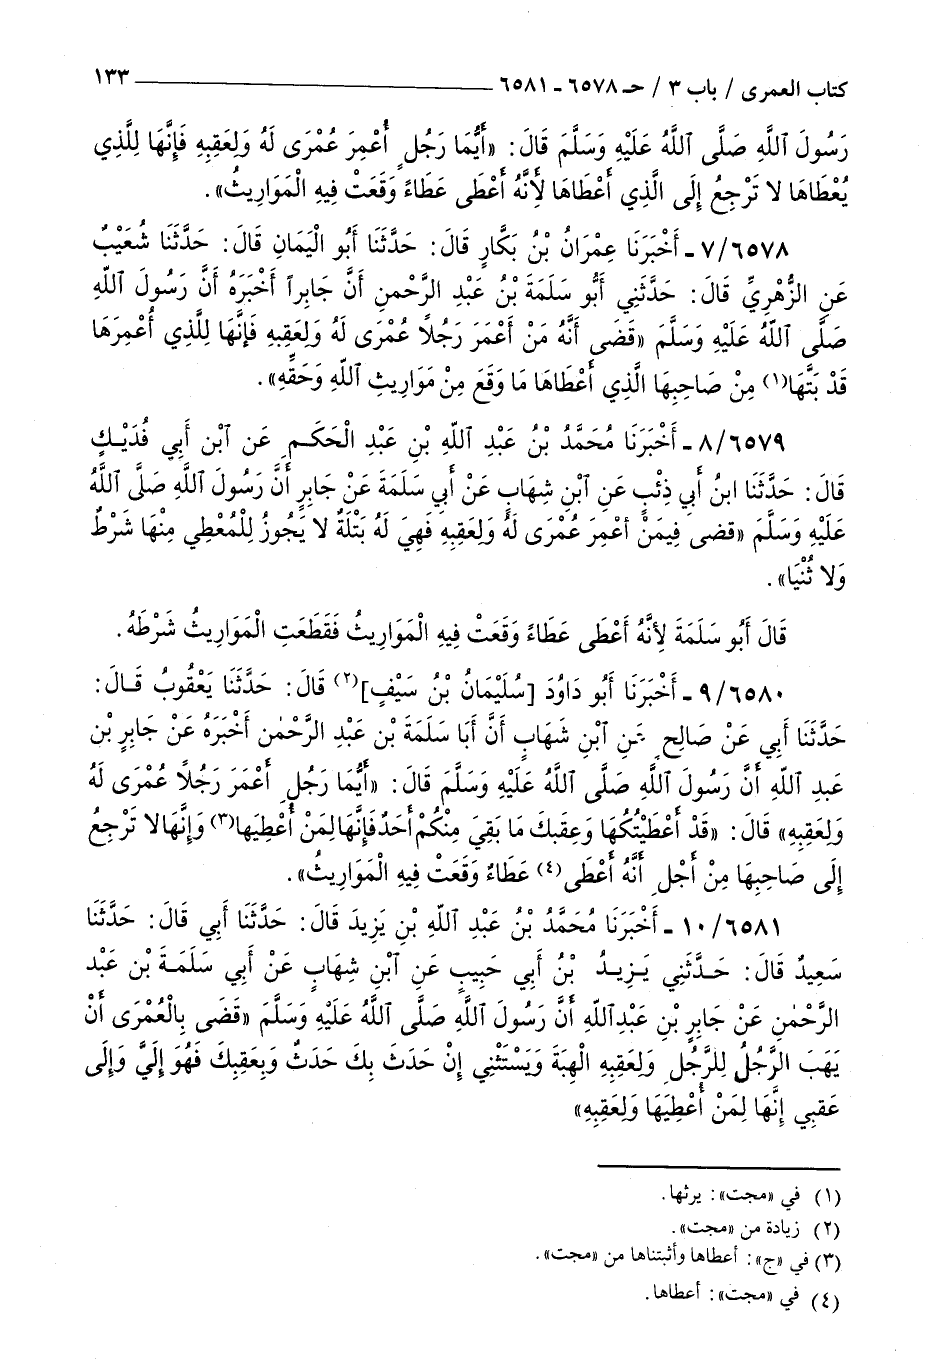 كتاب العمرى / باب ٣ / حـ ٦٥٧٨ - ٦٥٨١ ١٣٣
رَسُولَ ٱللَّهِ صَلَّى ٱللَّهُ عَلَيْهِ وَسَلَّمَ قَالَ: «أَيُّمَا رَجُلٍ أُعْمِرَ عُمْرَى لَهُ وَلِعَقِبِهِ فَإِنَّهَا لِلَّذِي
يُعْطَاهَا لا تَرْجِعُ إِلَى الَّذِي أَعْطَاهَا لأَِنَّهُ أَعْطَى عَطَاءً وَقَعَتْ فِيهِ الْمَوَارِيثُ».
٧/٦٥٧٨ - أَخْبَرَنَا عِمْرَانُ بْنُ بَكَّارٍ قَالَ: حَدَّثَنَا أَبُو الْيَمَانِ قَالَ: حَدَّثَنَا شُعَيْبٌ
عَنِ الزُّهْرِيِّ قَالَ: حَدَّثَنِي أَبُو سَلَمَةَ بْنُ عَبْدِ الرَّحْمنِ أَنَّ جَابِراً أَخْبَرَهُ أَنَّ رَسُولَ ٱللّهِ
صَلَّى ٱللّهُ عَلَيْهِ وَسَلَّمَ «قَضَى أَنَّهُ مَنْ أَعْمَرَ رَجُلاً عُمْرَى لَهُ وَلِعَقِبِهِ فَإِنَّهَا لِلَّذِي أُعْمِرَهَا
قَدْ بَتَّهَا(١) مِنْ صَاحِبِهَا الَّذِي أَعْطَاهَا مَا وَقَعَ مِنْ مَوَارِيثِ ٱللّهِ وَحَقِّهِ».
٨/٦٥٧٩ - أَخْبَرَنَا مُحَمَّدُ بْنُ عَبْدِ ٱللّهِ بْنِ عَبْدِ الْحَكَمِ عَنِ ٱبْنِ أَبِي فُدَيْـكٍ
قَالَ: حَدَّثَنَا ابنُ أَبي ذِئْبٍ عَنِ ٱبْنِ شِهَابٍ عَنْ أَبِي سَلَمَةَ عَنْ جَابِرٍ أَنَّ رَسُولَ ٱللَّهِ صَلَّى ٱللَّهُ
عَلَيْهِ وَسَلَّمَ «قضى فِيمَنْ أعْمِرَ عُمْرَى لَهُ وَلِعَقِبِهِ فَهِيَ لَهُ بَتْلَةٌ لا يَجُوزُ لِلْمُعْطِي مِنْهَا شَرْطٌ
وَلا ثُنْيَا».
قَالَ أَبُو سَلَمَةَ لأَِنَّهُ أَعْطَى عَطَاءً وَقَعَتْ فِيهِ الْمَوَارِيثُ فَقَطَعَتِ الْمَوَارِيثُ شَرْطَهُ.
٩/٦٥٨٠ - أَخْبَرَنَا أَبُو دَاوُدَ [سُلَيْمَانُ بْنُ سَيْفٍ](٢) قَالَ: حَدَّثَنَا يَعْقُوبُ قَـالَ:
حَدَّثَنَا أَبِي عَنْ صَالِحٍ عَنِ ٱبْنِ شَهَابٍ أَنَّ أَبَا سَلَمَةَ بْنِ عَبْدِ الرَّحْمٰنِ أَخْبَرَهُ عَنْ جَابِرِ بْنِ
عَبدِ ٱللّهِ أَنَّ رَسُولَ ٱللَّهِ صَلَّى ٱللَّهُ عَلَيْهِ وَسَلَّمَ قَالَ: «أَيُّمَا رَجُلٍ أَعْمَرَ رَجُلاً عُمْرَى لَهُ
وَلِعَقِبِهِ» قَالَ: «قَدْ أَعْطَيْتُكَهَا وَعقِبَكَ مَا بَقِيَ مِنْكُمْ أَحَدٌ فَإِنَّهَا لِمَنْ أُعْطِيَها(٣) وَإِنَّهَا لا تَرْجِعُ
إِلَى صَاحِبِهَا مِنْ أَجْلِ أَنَّهُ أَعْطَى(٤) عَطَاءً وَقَعَتْ فِيهِ الْمَوَارِيثُ».
١٠/٦٥٨١ - أَخْبَرَنَا مُحَمَّدُ بْنُ عَبْدِ ٱللّهِ بْنِ يَزِيدَ قَالَ: حَدَّثَنَا أَبِي قَالَ: حَدَّثَنَا
سَعِيدٌ قَالَ: حَـدَّثَنِي يَـزِيـدُ بْنُ أَبِي حَبِيبٍ عَنِ ٱبْنِ شِهَابٍ عَنْ أَبِي سَلَمَةَ بْنِ عَبْدِ
الرَّحْمٰنِ عَنْ جَابِرِ بْنِ عَبْدِٱللّهِ أَنَّ رَسُولَ ٱللَّهِ صَلَّى ٱللَّهُ عَلَيْهِ وَسَلَّمَ «قَضَى بِالْعُمْرَى أَنْ
يَهَبَ الرَّجُلُ لِلرَّجُلِ وَلِعَقِبِهِ الْهِبَةَ وَيَسْتَثْنِي إِنْ حَدَثَ بِكَ حَدَثٌ وَبِعَقِبِكَ فَهُوَ إِلَيَّ وَإِلَى
عَقبِي إِنَّهَا لِمَنْ أُعْطِيَهَا وَلِعَقِبِهِ»
(١) في «مجت»: يرثها.
(٢) زيادة من «مجت».
(٣) في «ج»: أعطاها وأثبتناها من «مجت».
(٤) في «مجت»: أعطاها.